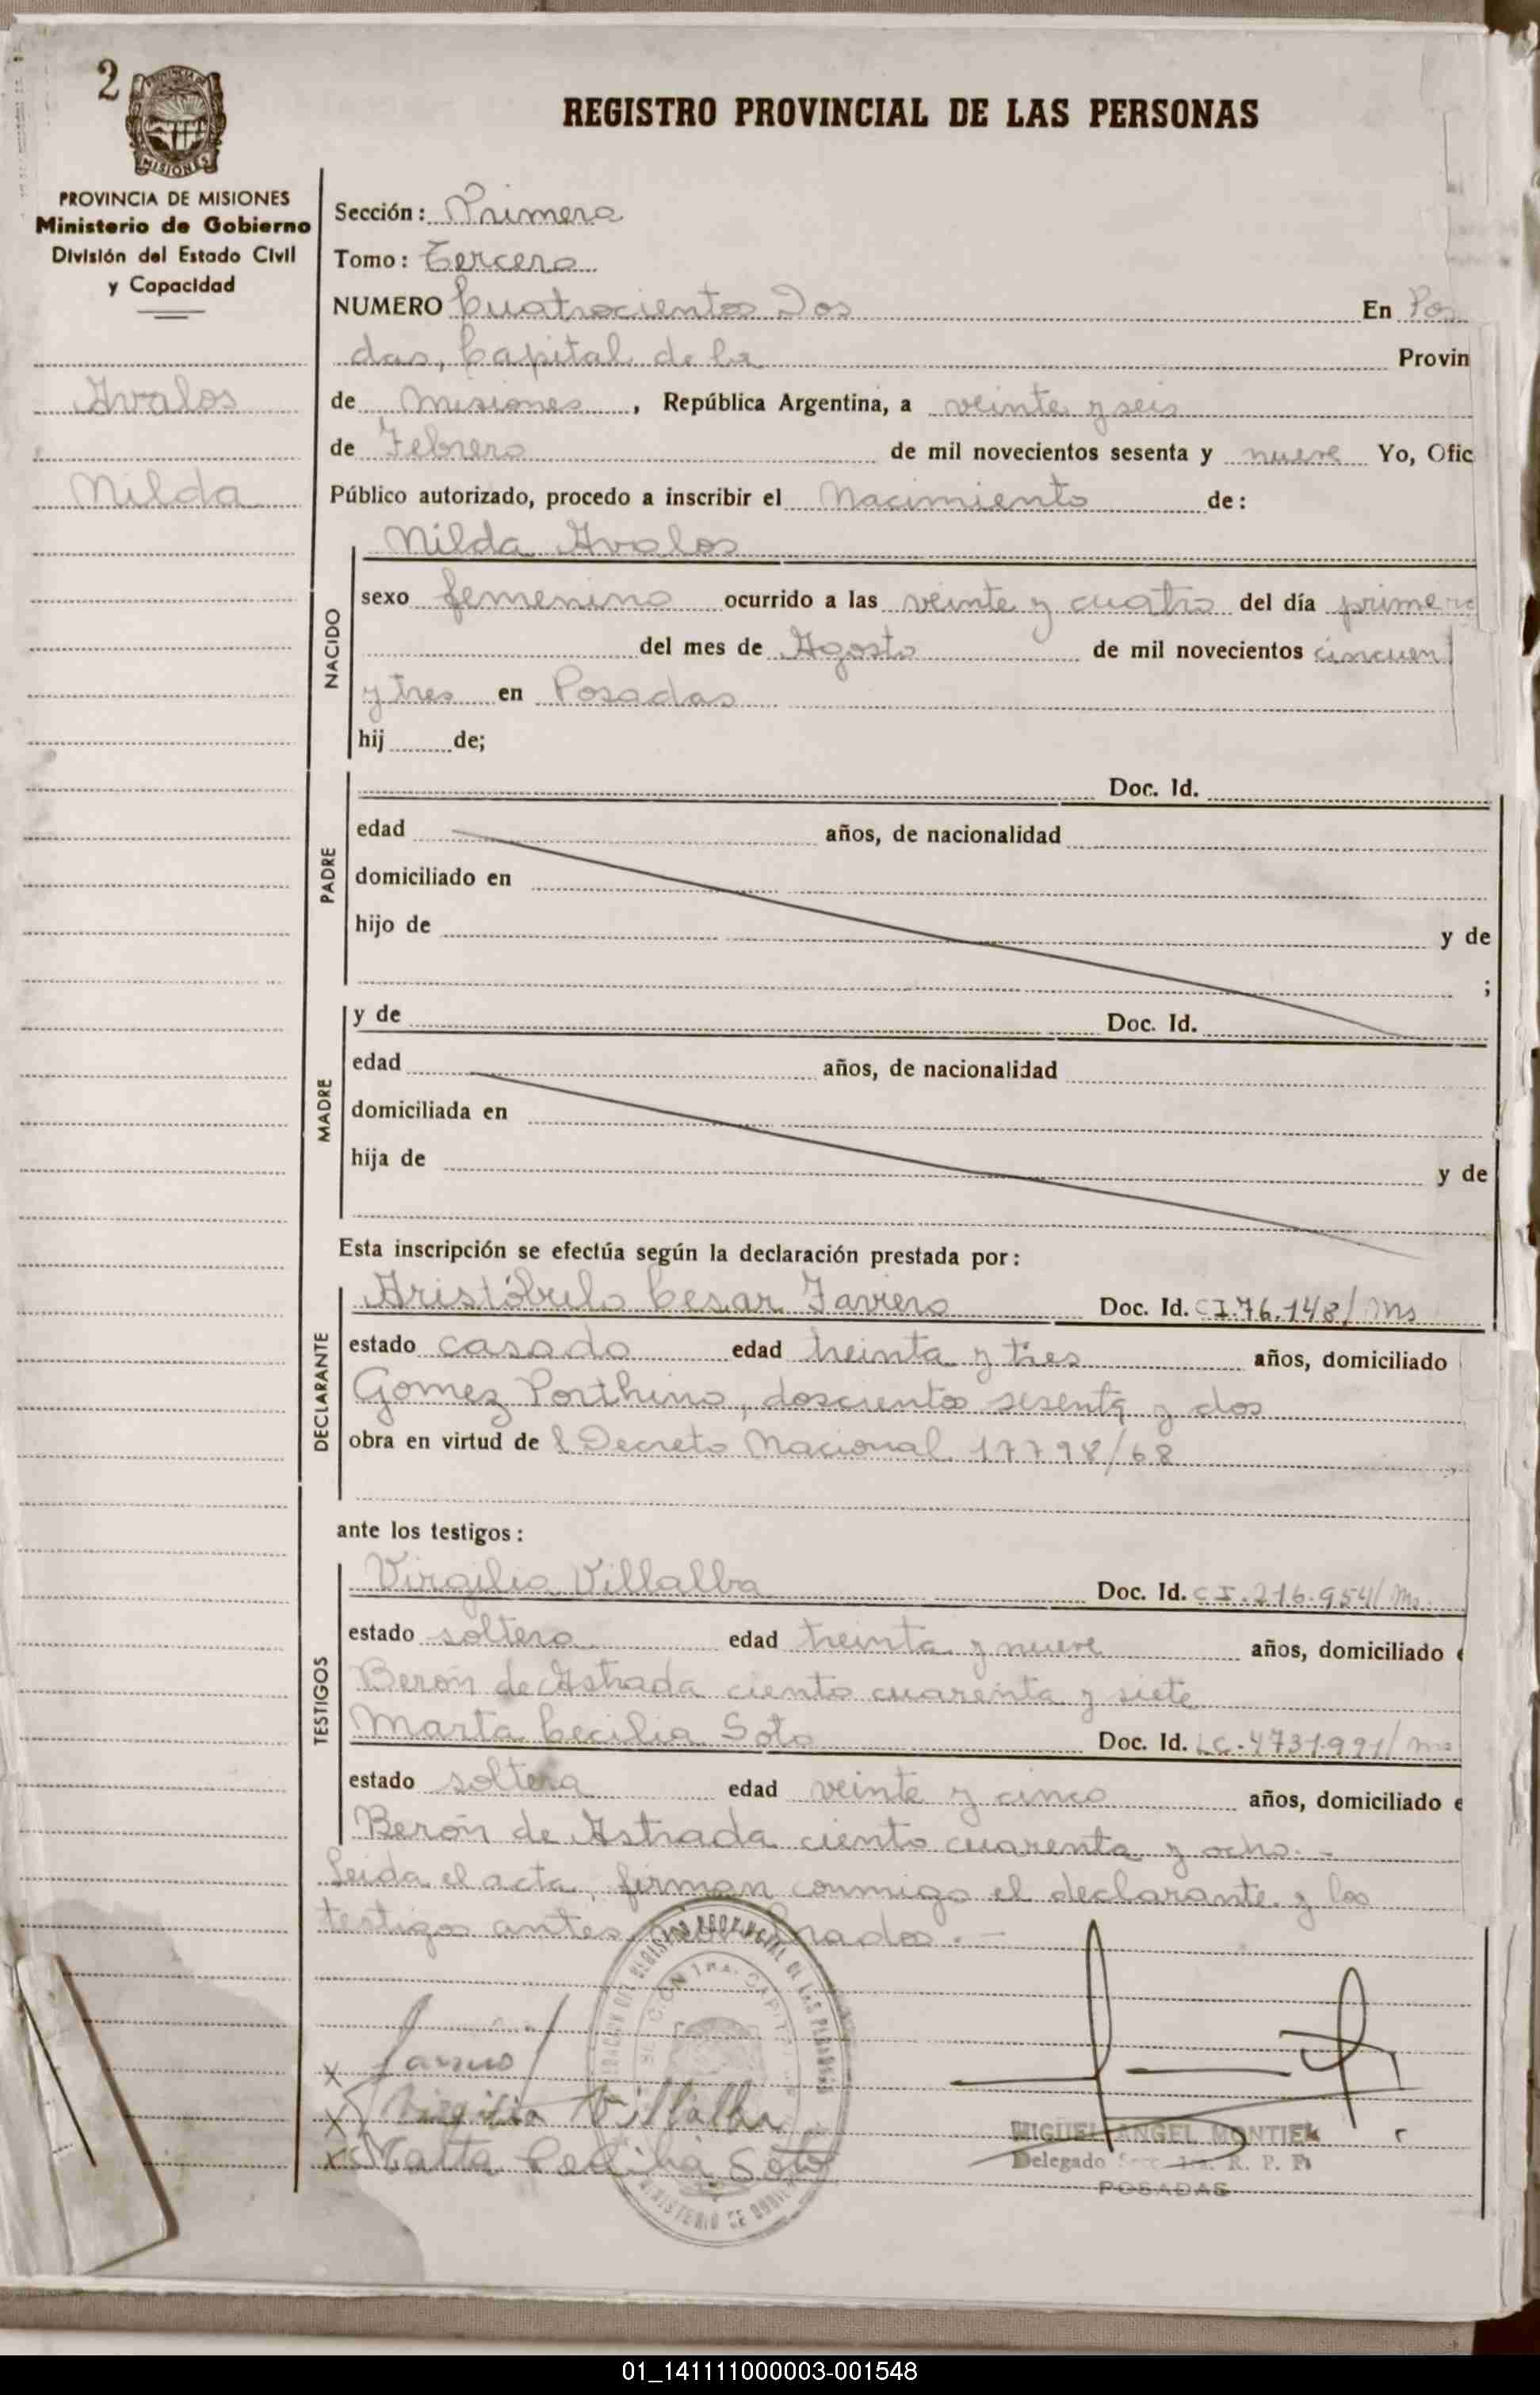 2
MISIONES
REGISTRO PROVINCIAL DE LAS PERSONAS
PROVINCIA DE MISIONES
Ministerio de Gobierno
División del Estado Civil
y Capacidad
Avalos
Nilda
Sección: Primera
Tomo: Tercero
NUMERO Cuatrocientos Dos En Posa
das, Capital de la Provin
de Misiones, República Argentina, a veinte y seis
de Febrero de mil novecientos sesenta y nueve Yo, Ofic
Público autorizado, procedo a inscribir el Nacimiento de:
Nilda Avalos
NACIDO
sexo femenino ocurrido a las veinte y cuatro del día primero
del mes de Agosto de mil novecientos cincuent
y tres en Posadas
hij de;
PADRE
Doc. Id.
edad años, de nacionalidad
domiciliado en
hijo de y de
;
MADRE
y de Doc. Id.
edad años, de nacionalidad
domiciliada en
hija de y de
Esta inscripción se efectúa según la declaración prestada por:
DECLARANTE
Aristóbulo Cesar Javiero Doc. Id. CI.76.148/Ms
estado casado edad treinta y tres años, domiciliado
Gomez Porthino, doscientos sesenta y dos
obra en virtud de l Decreto Nacional 17798/68
ante los testigos:
TESTIGOS
Virgilio Villalba Doc. Id. CI.216.954/Ms.
estado soltero edad treinta y nueve años, domiciliado e
Berón de Astrada ciento cuarenta y siete
Marta Cecilia Soto Doc. Id. LC.4731991/Ms
estado soltera edad veinte y cinco años, domiciliado e
Berón de Astrada ciento cuarenta y ocho.-
Leida el acta, firman conmigo el declarante y los
testigos antes nombrados.-
Virgilio Villalba
Marta Cecilia Soto
MIGUEL ANGEL MONTIEL
Delegado Secc. 1ra. R. P. P.
POSADAS
01_141111000003-001548